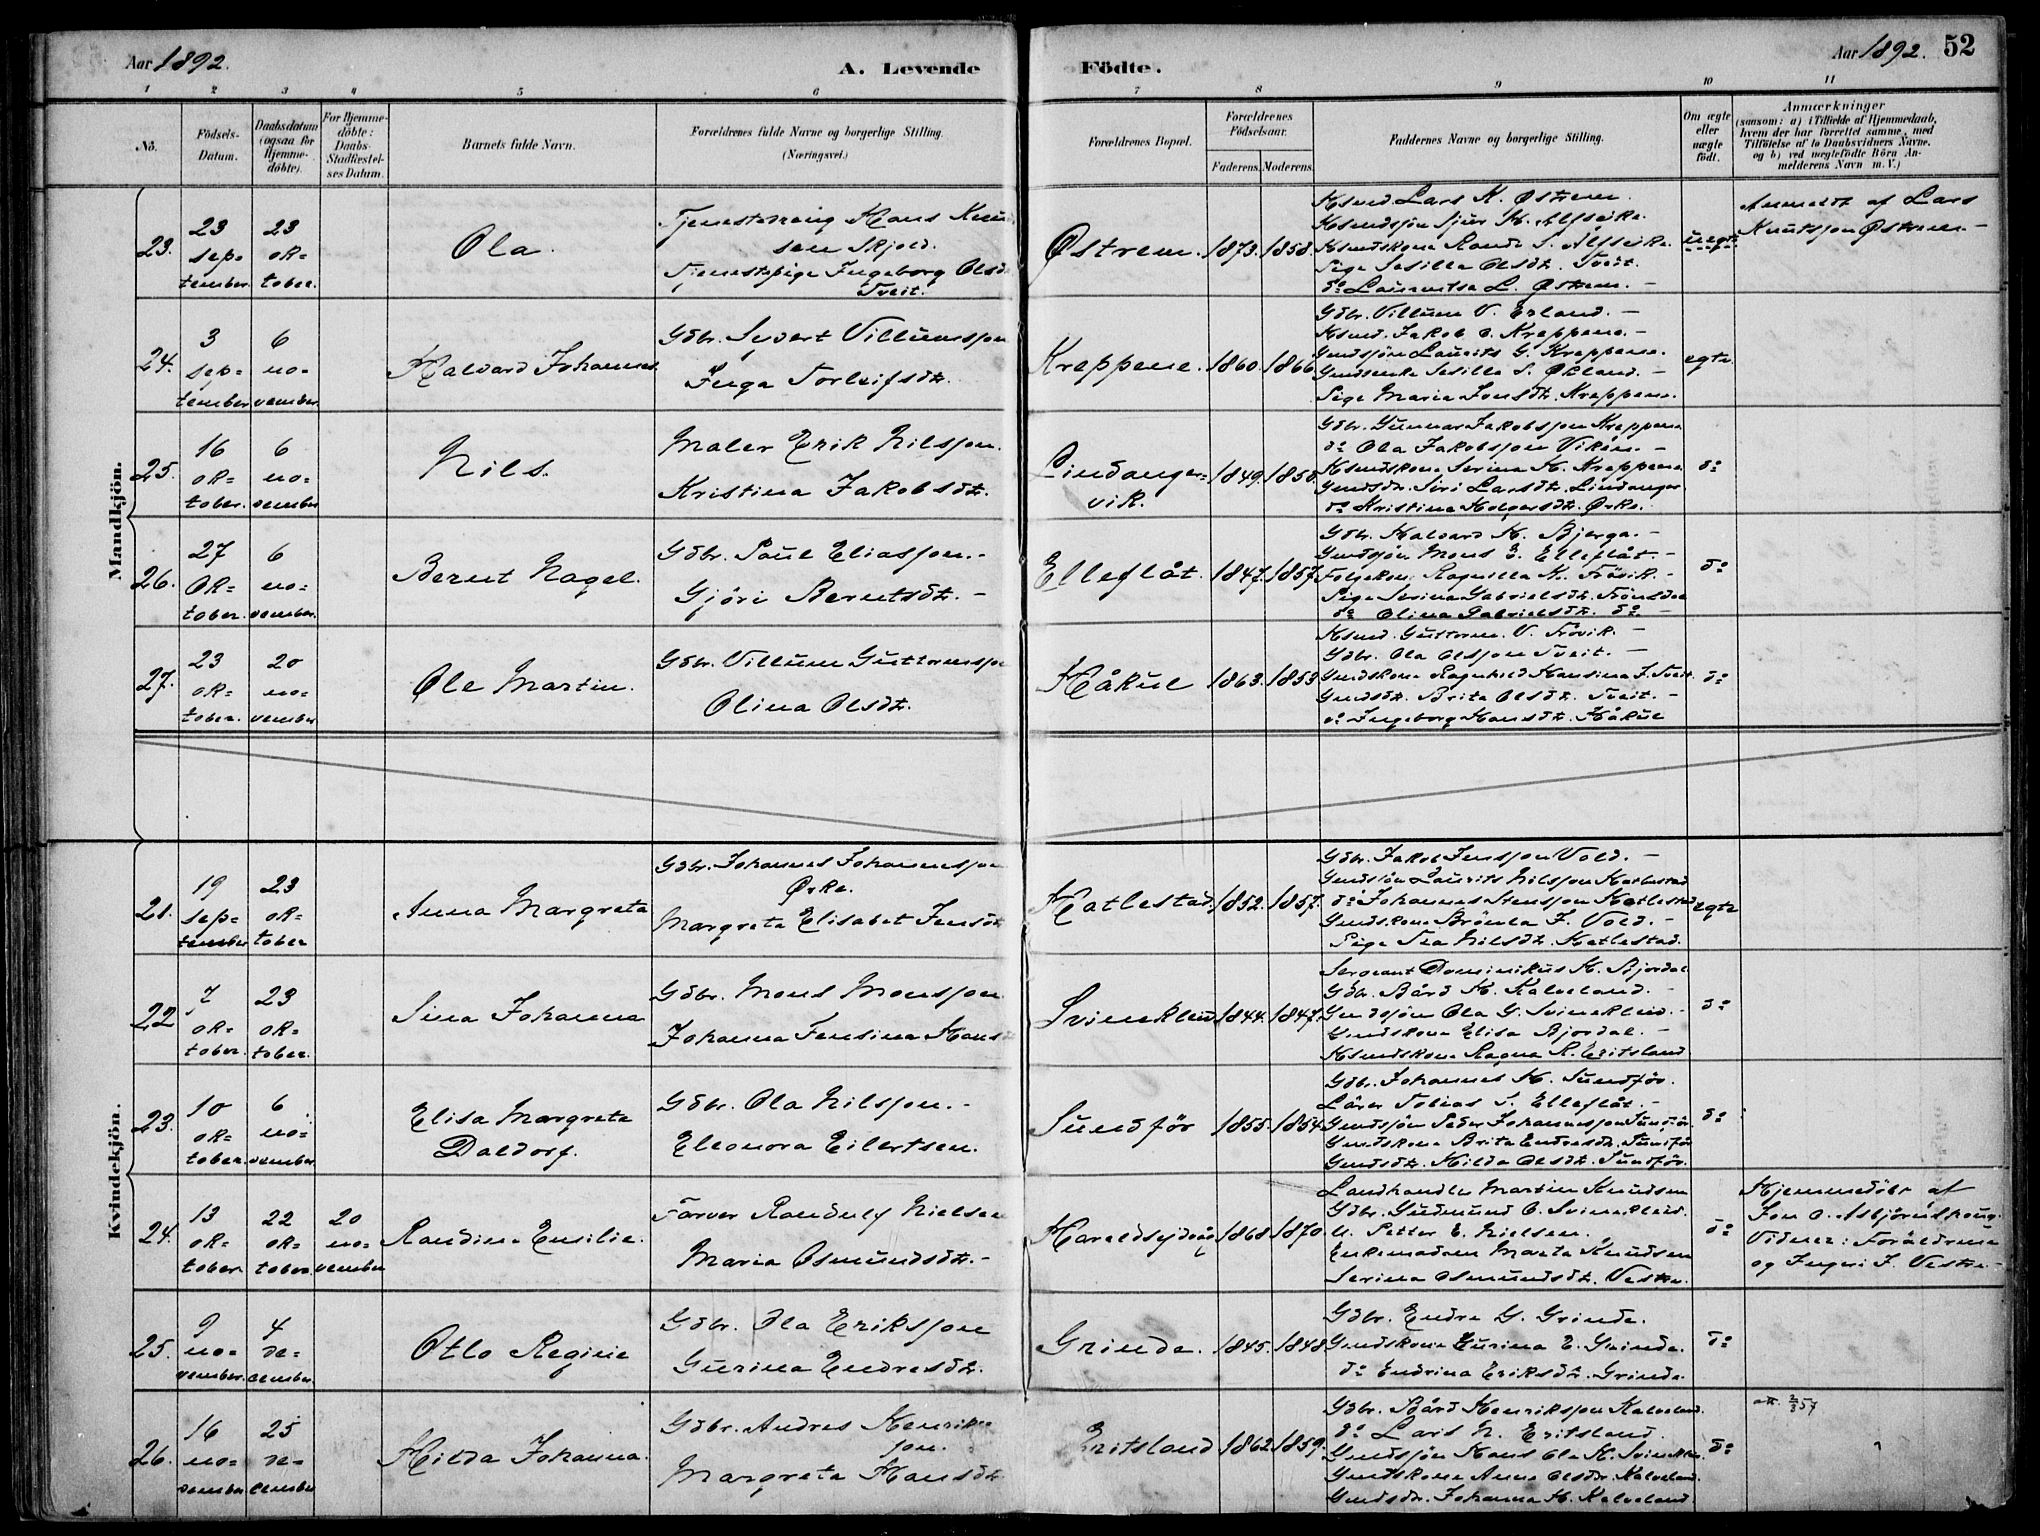 Aar 1892.
A. Levende Födte.
Aar 1892. 52
1 2 3 4 5 6 7 8 9 10 11
Nö.
Födsels-Datum.
Daabsdatum (ogsaa for Hjemme-döbte).
For Hjemme-döbte: Daabs-Stadfæstel-ses Datum.
Barnets fulde Navn.
Forældrenes fulde Navne og borgerlige Stilling. (Næringsvei.)
Forældrenes Bopæl.
Forældrenes Födselsaar.
Faderens. Moderens.
Faddernes Navne og borgerlige Stilling.
Om ægte eller uægte födt.
Anmærkninger (saasom: a) i Tilfælde af Hjemmedaab, hvem der har forrettet samme, med Tilföielse af to Daabsvidners Navne, og b) ved uægtefödte Börn Anmelderens Navn m. V.)
Mandkjön.
23.
23 september
23 oktober.
Ola.
Tjenestedreng Hans Knudsen Skjold.
Tjenestepige Ingeborg Olsd. Tveit.
Østrem. 1873. 1858.
Ksmd Lars K. Østrem.
Pige Sesilla Olsdt. Tveit.
do Lauentsa L. Østrem.
uegte
Anmeldt af Lars Knutsson Østrem
24.
3 september
6 november
Halvard Johannes.
Gdbr. Sjvert Villumsson
Inga Torleifsdt.
Kreppene. 1860. 1866
Gdbr. Villum V. Erland.
Ksmd. Jakob O. Kreppene.
Gmdsjön Laurits G. Kreppene.
Gmdsenke Sesilla S. Økland.
Pige Maria Jonsdt. Kreppene.
egte
25.
16 oktober.
6 november
Nils.
Maler Erik Nilsson.
Kristina Jakobsdt.
Lindangervik. 1849. 1850.
Gdbr. Gunnar Jakobsson Kreppene
do Ola Jakobsson Viken.
Ksmdskone Serina H. Kreppene
Gmdsdt. Siri Larsdt. Lindanger
do Kristina Holgersdt. Ørke.
do
26.
27 oktober.
6 november.
Bernt Nagel.
Gdbr. Paul Eliasson.
Gjöri Berntsdt.
Elleflåt. 1847. 1857.
Gdbr. Halvard H. Bjerga.
Gmdsjön Mons E. Elleflåt.
Pige Serina Gabrielsdt.
do Olina Gabrielsdt. do
do
27.
23 oktober.
20 november
Ole Martin.
Gdbr. Villum Guttormsso
Olina Olsdt.
Håkul 1863. 1853
Ksmd. Guttorm V. Trövik.
Gdbr. Ola Olsson Tveit.
Gmdskone Ragnhild Hansina J. Tveit.
Gmdsdt. Brita Olsdt. Tveit.
do Ingeborg Hansdt. Håkul
do
Kvindekjön.
21.
19 september
23 oktober
Anna Margreta
Gdbr. Johannes Johannesson Ørke.
Margreta Elisabet Jensdt
Hatlestad. 1852. 1857.
Gdbr. Jakob Jensson Vold.
Gmdsjön Laurits Nilsson Hatlestad
do Johannes Stensson Hatlestad
Gmdskone Brönla J. Vold.
Pige Tea Nilsdt. Hatlestad.
egte
22
7 oktober.
23 oktober.
Sina Johanna
Gdbr. Mons Monsson
Johanna Jensina Hansd
Svinekleiv 1844. 1847.
Sergeant Dominikus K. Bjordal
Gdbr. Bård H. Kalveland.
Gmdsjön Ola G. Svinekleiv.
Gmdskone Elisa Bjordal.
Ksmdskone Ragna R. Eritsland
do
23.
10 oktober.
6 november
Elisa Margreta Daldorf.
Gdbr. Ola Nilsson.
Eleonora Eilertsen.
Sundför 1855. 1854.
Gdbr. Johannes H. Sundför.
Lärer Tobias S. Elleflåt.
Gmdsjön Peder Johannesson Sundför
Gmdskone Brita Endresdt. Sundför
Gmdsdt. Hilda Olsdt. Sundför.
do
24.
13 oktober
22 oktober
20 november
Randine Emilie.
Farver Randulf Nielsen
Maria Osmundsdt.
1868 1870.
Landhandler Martin Knudsen
Gdbr. Gudmund O. Svinekleiv.
U. Petter E. Nielsen.
Enkemadam Marta Knudsen
Serina Osmundsdt. Vestre.
do
Hjemmedöbt af Jon O. Asbjörnshaug.
Vidner: Foräldrene og Ingeri J. Vestre
25.
9 november.
4 december.
Otto Regine
Gdbr. Ola Eriksson
Gurina Endresdt.
Grinde. 1845. 1848
Gdbr. Endre G. Grinde.
Gmdskone Gurina E. Grinde.
do Endrina Eriksdt. Grinde.
do
26.
16 november
25 december
Hilda Johanna.
Gdbr. Andres Henriksson.
Margreta Hansdt
Eritsland 1862. 1859.
Gdbr. Bård Henriksson Kalveland.
do Lars N. Eritsland
Gmdsjön Hans Ola H. Svinekleiv.
Gmdskone Anna Olsdt. Kalveland.
Gmdsdt. Johanna H. Kalveland
do
att. 2/3 57